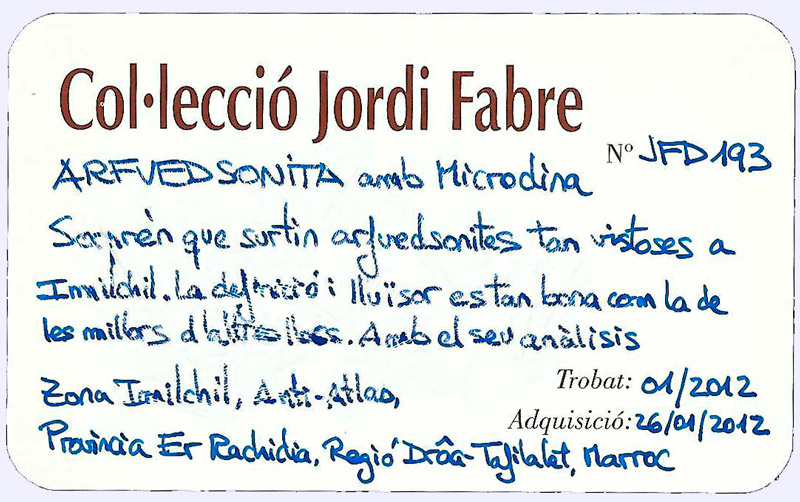 Col·lecció Jordi Fabre
Nº JFD193
ARFVEDSONITA amb Microclina
Sorprèn que surtin arfvedsonites tan vistoses a
Imilchil. La definició i lluïsor es tan bona com la de
les millors d'altres llocs. Amb el seu anàlisis
Zona Imilchil, Anti-Atlas,
Trobat: 01/2012
Adquisició: 26/01/2012
Província Er Rachidia, Regió Drâa-Tafilalet, Marroc